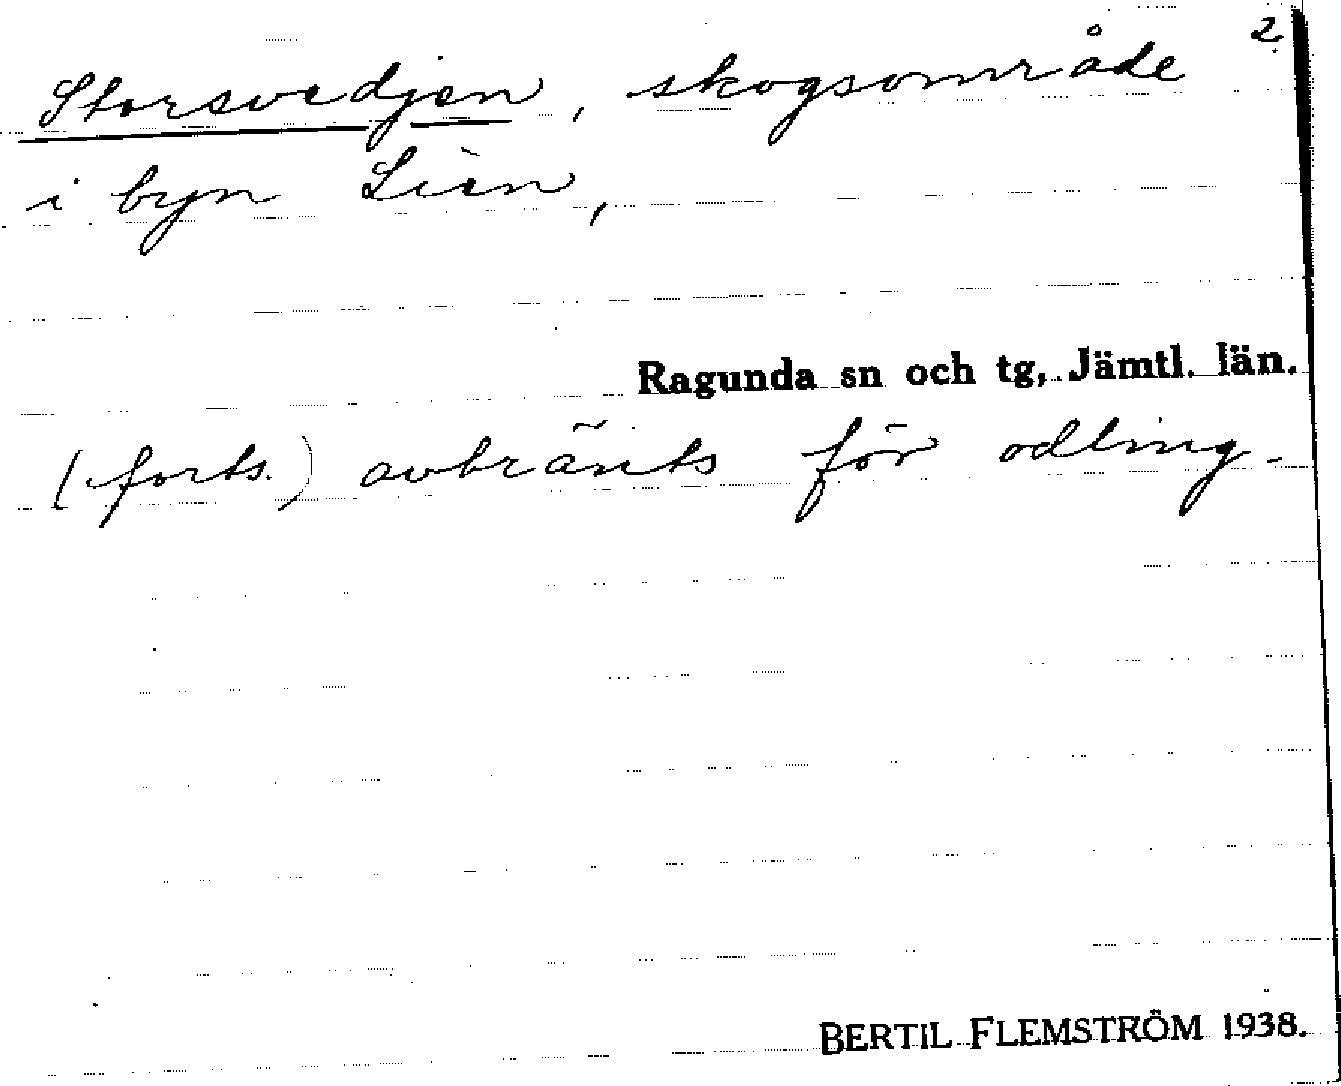 2
Storsvedjen, skogsområde
i byn Lièn,
Ragunda sn och tg, Jämtl. län.
(forts.) avbränts för odling.
BERTIL FLEMSTRÖM 1938.